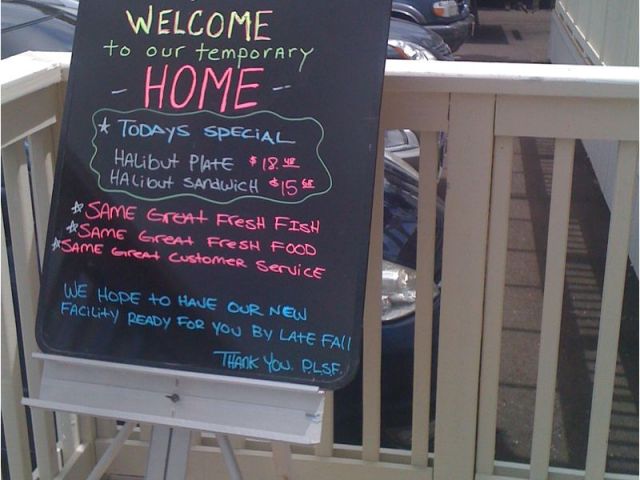 WELCOME
to our temporary
- HOME --
* TODAYS SPECIAL
HALIBUT PLATE $18.48
HALIBUT SANDWICH $15
* SAME GREAT FRESH FISH
* SAME GREAT FRESH FOOD
* SAME GREAT CUSTOMER SERVICE
WE HOPE TO HAVE OUR NEW
FACILITY READY FOR YOU BY LATE FALL
THANK YOU. P.L.S.F.